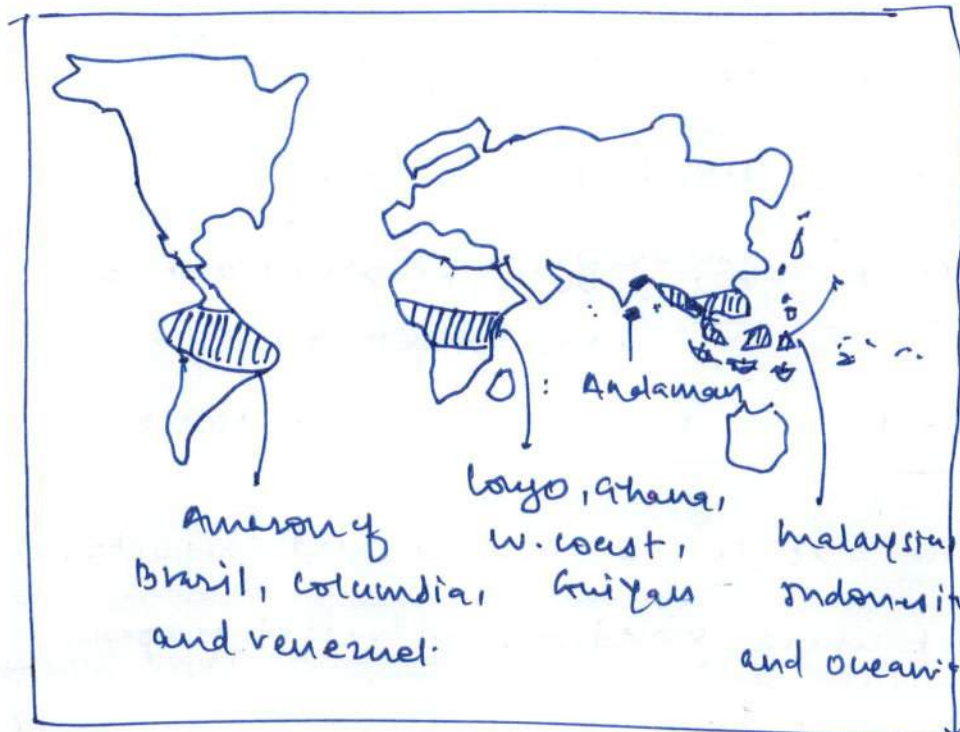 : Andaman
Amazon of
Brazil, Columbia,
and Venezuel.
Congo, Ghana,
W. Coast,
Guiyan
Malaysia,
Indonesia
and Oceani